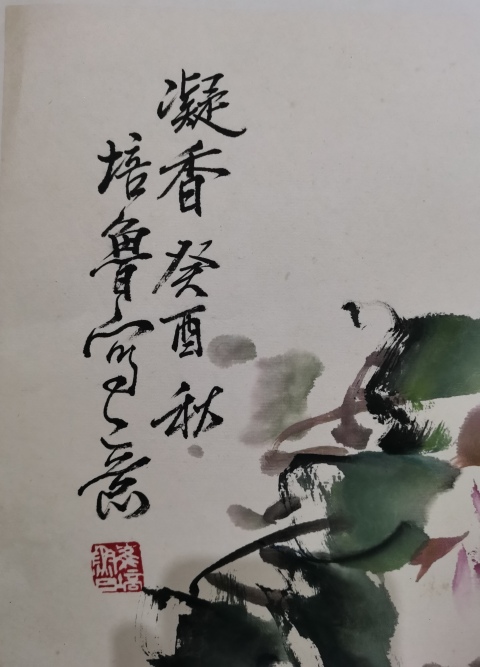 凝香 癸酉秋
培魯寫意